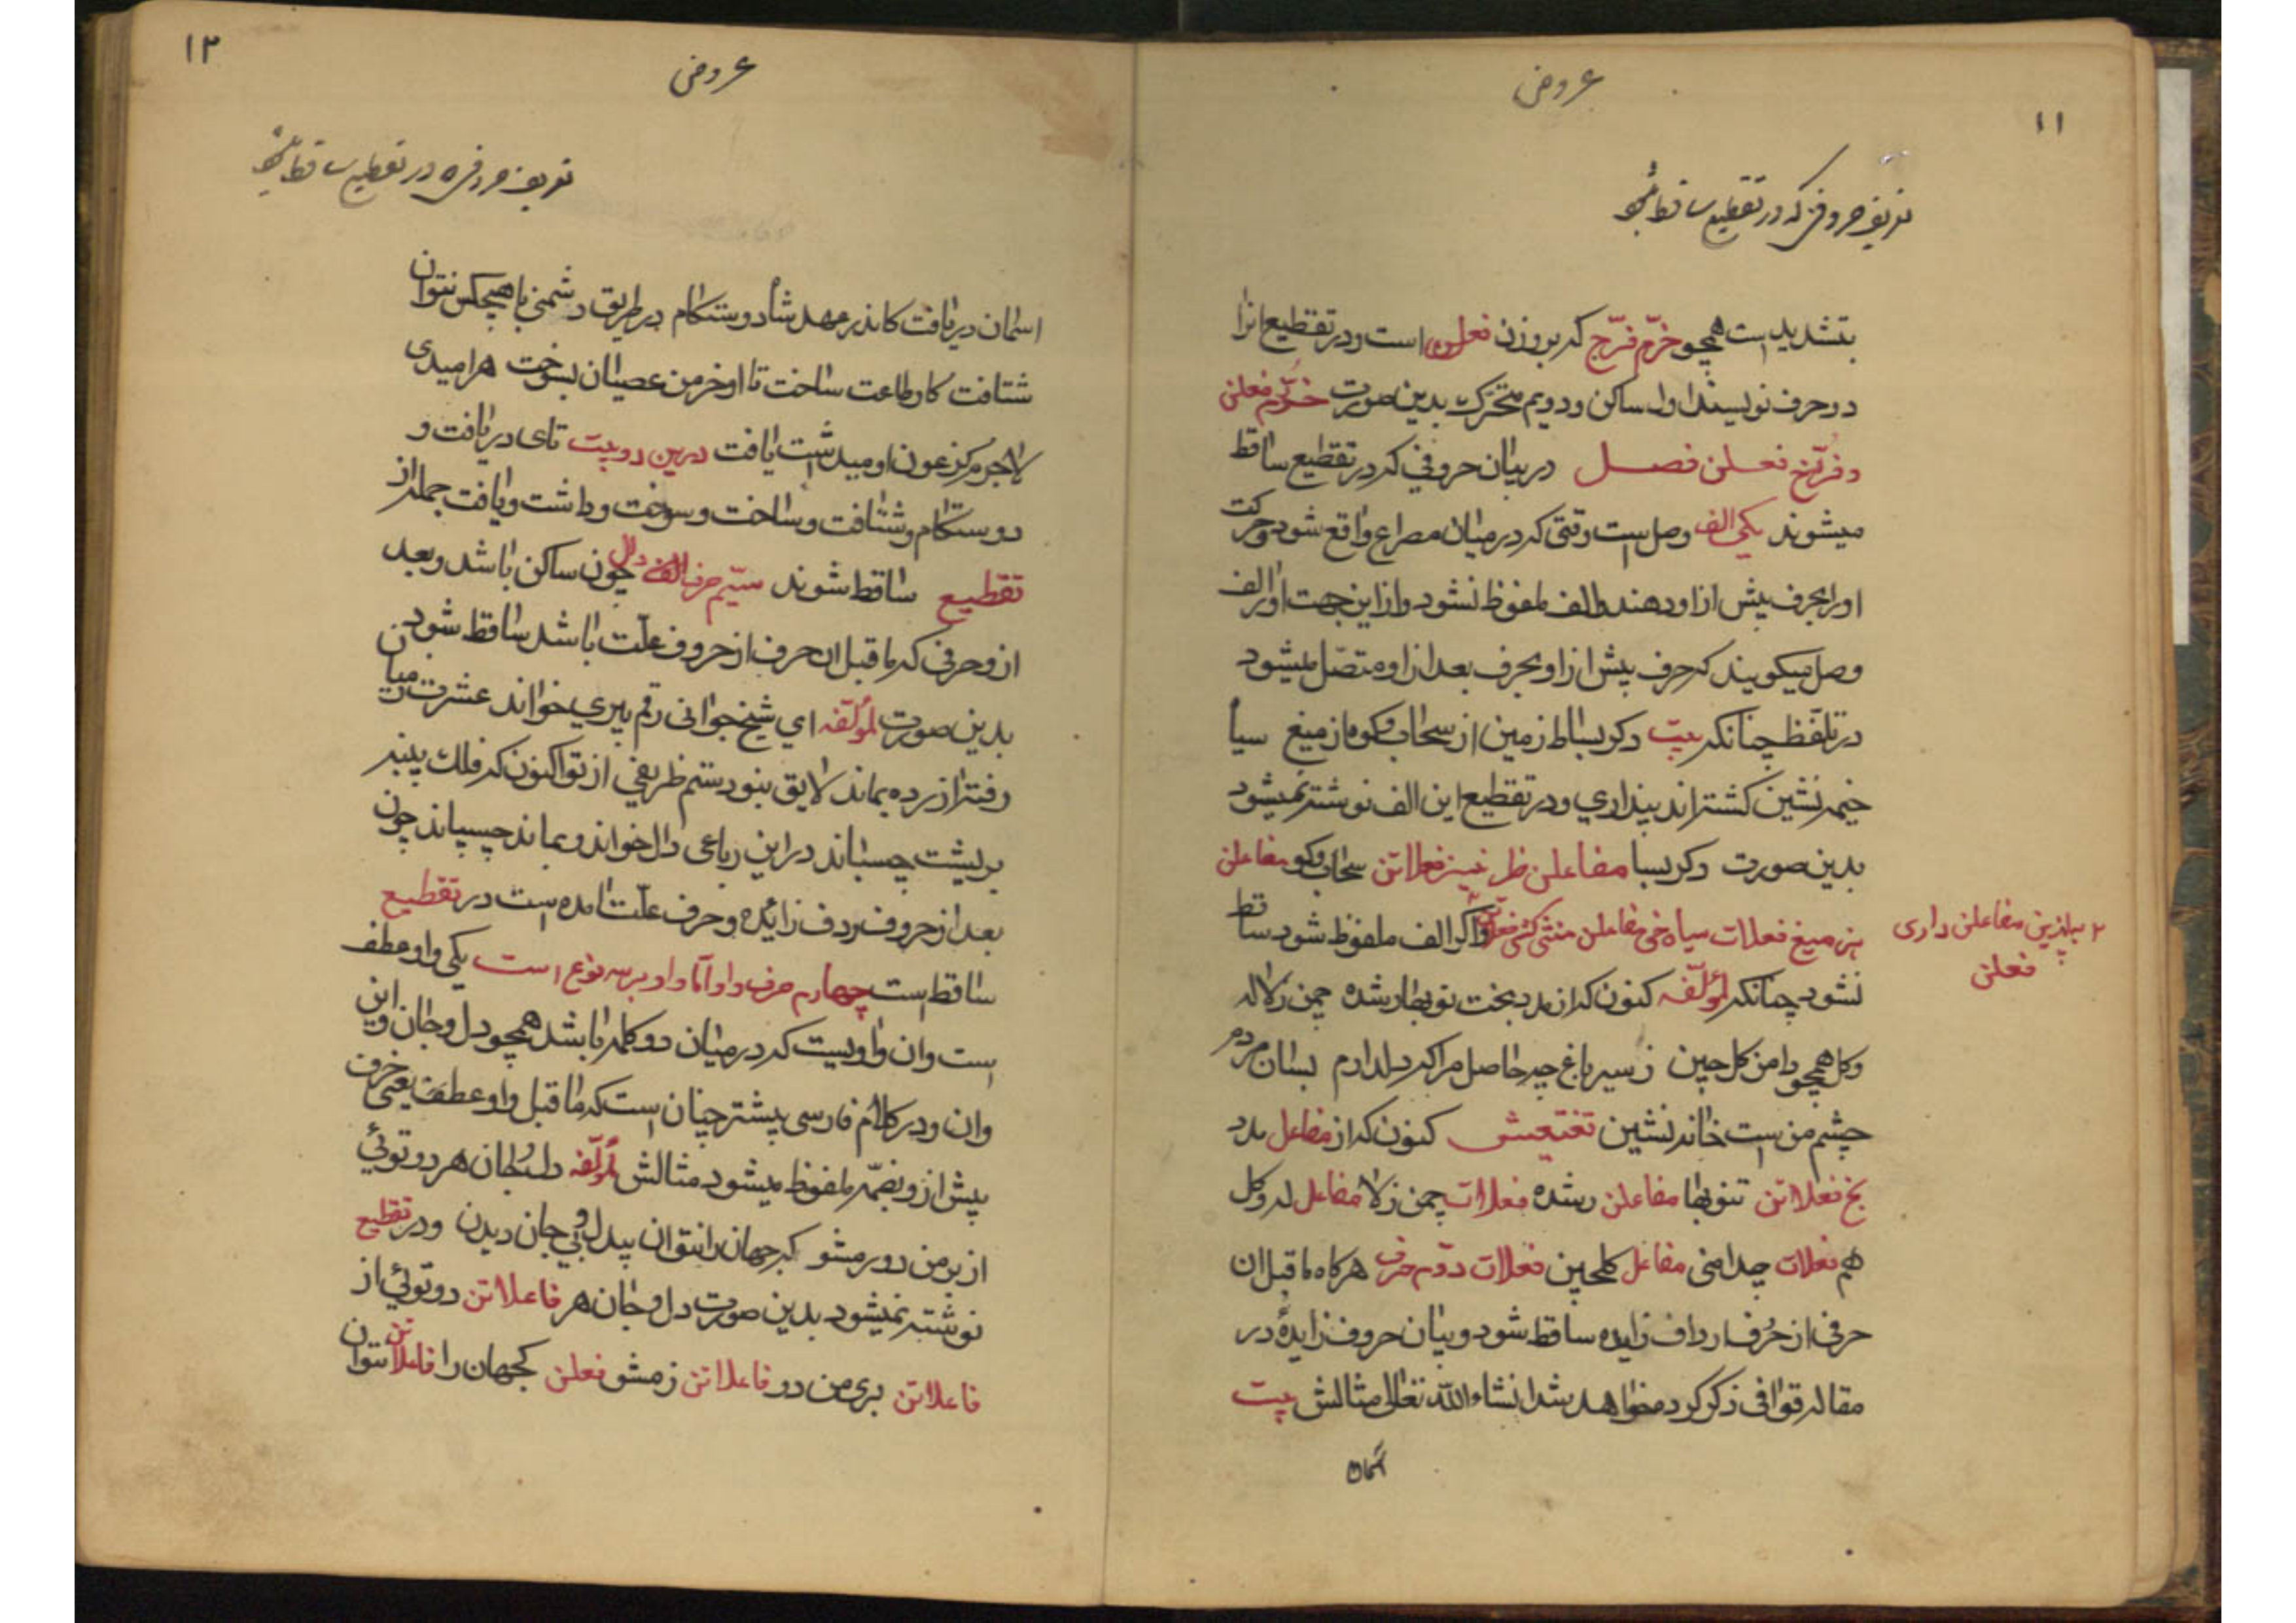 ۱۱
عروض
تعریف حروفی که در تقطیع ساقط میشود
بتشدید است همچو خرّم فرّخ که بر وزن فعلن است و در تقطیع انرا
دو حرف نویسند اول ساکن و دویم متحرک بدین صورت خررم فعلن
و فررخ فعلن فصل در بیان حروفی که در تقطیع ساقط
میشوند یکی الف وصل است وقتی که در میان مصراع واقع شود و حرکت
اورا بحرف پیش از او دهند و الف ملفوظ نشود و از این جهت او را الف
وصل میکویند که حرف پیش از او بحرف بعد از او متصّل میشود
در تلفّظ چنانکه بیت دکر بساط زمین از سحاب و کوه از میغ سیا
خیمه نشین کشته اند پنداری و در تقطیع این الف نوشته نمیشود
بدین صورت دکر بسا مفاعلن ط زمیز فعلاتن سحاب و کو مفاعلن
هز میغ فعلات سیاه خی مفاعلن منشی کش فعلاتن و اکر الف ملفوظ شود ساقط
۲ بپنزین مفاعلن داری
فعلن
نشود چنانکه لمؤلّفه کنون که از مدد بخت نوبهار شده چمن ز لاله
و کل همچو دامن کل چین ز سیر باغ چه حاصل مرا که دلدارم بسان مردم
چشم من است خانه نشین تقتیعش کنون که از مفاعل مدد
بخ فعلاتن تنوبها مفاعلن رشده فعلات چمن ز لا مفاعل له و کل
هم فعلات چدامنی مفاعل کلچین فعلات دوّم حرف هرکاه ماقبل ان
حرفی از حُرف ارداف زایده ساقط شود و بیان حروف زایدهٔ در
مقاله قوافی ذکر کرده خواهد شد انشاء الله تعالی مثالش بیت
اسمان
۱۲
عروض
تعریف حروفی که در تقطیع ساقط میشود
اسمان دریافت کاندر عهد شاه دوستکام در طریق دشمنی با هیچکس نتوان
شتافت کار طاعت ساخت تا او خرمن عصیان بسوخت هر امیدی
لاجرم کز عون او میداشت یافت درین دو بیت تای دریافت و
دوستکام و شتافت و ساخت و سوخت و داشت و یافت جمله از
تقطیع ساقط شوند سیّم حرف الف دال چون ساکن باشد و بعد
از و حرفی که ماقبل ان حرف از حروف علّت باشد ساقط شود
بدین صورت لمؤلّفه ای شیخ جوانی رقم پیری خواند عشرت ز میان
رفت تراز رده بماند لایق نبود ستم ظریفی از تو اکنون که فلک پنبه
بریشت چسباند در این رباعی دال خواند و بماند چسپاند چون
بعد از حروف ردف زائده و حرف علّت امده است در تقطیع
ساقط است چهارم حرف واو امّا واو بر سه نوع است یکی واو عطف
است و ان واویست که در میان دو کلمه باشد همچو دل و جان و این
و ان و در کلام فارسی بیشتر چنان است که ماقبل واو عطف یعنی حرف
پیش از و بضمّه ملفوظ میشود مثالش لمؤلّفه دل و جان هر دو توئی
از بر من دور مشو که جهان را نتوان بیدل و بی جان دیدن و در تقطیع
نوشته نمیشود بدین صورت دل و جان هر فاعلاتن دو توئی از
فاعلاتن بری من دو فاعلاتن ز مشو فعلن کجهان را فاعلاتن نتوان